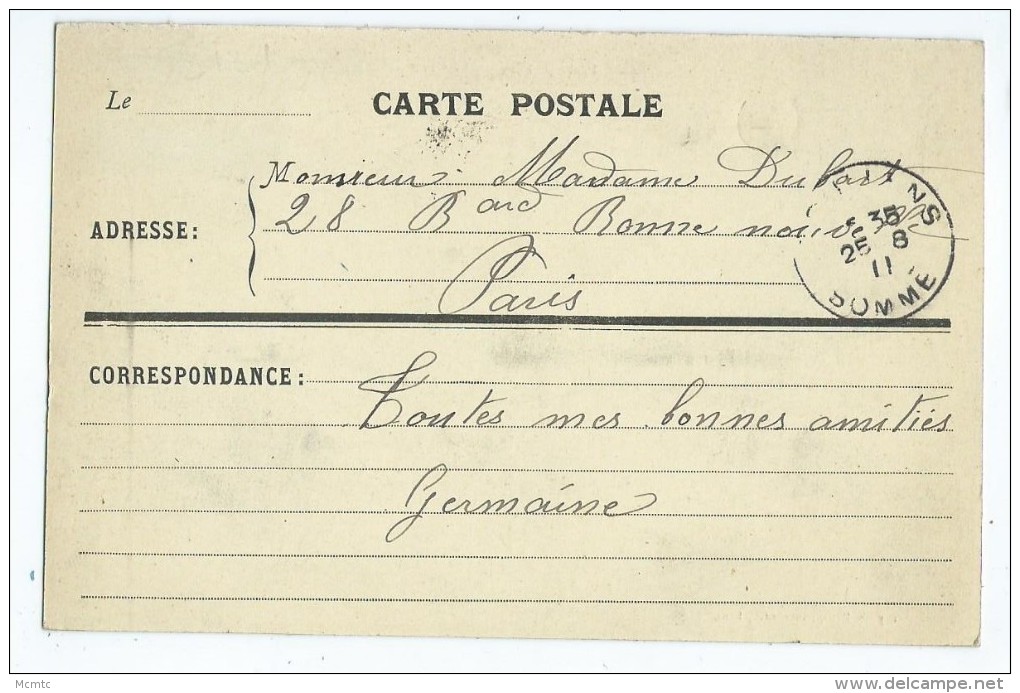 Le
CARTE POSTALE
ADRESSE:
Monsieur Madame Dubart
28 Bard Bonne nouvelle
Paris
25 8
11
SOMME
CORRESPONDANCE:
Toutes mes bonnes amitiés
Germaine
Mcmtc
www.delcampe.net